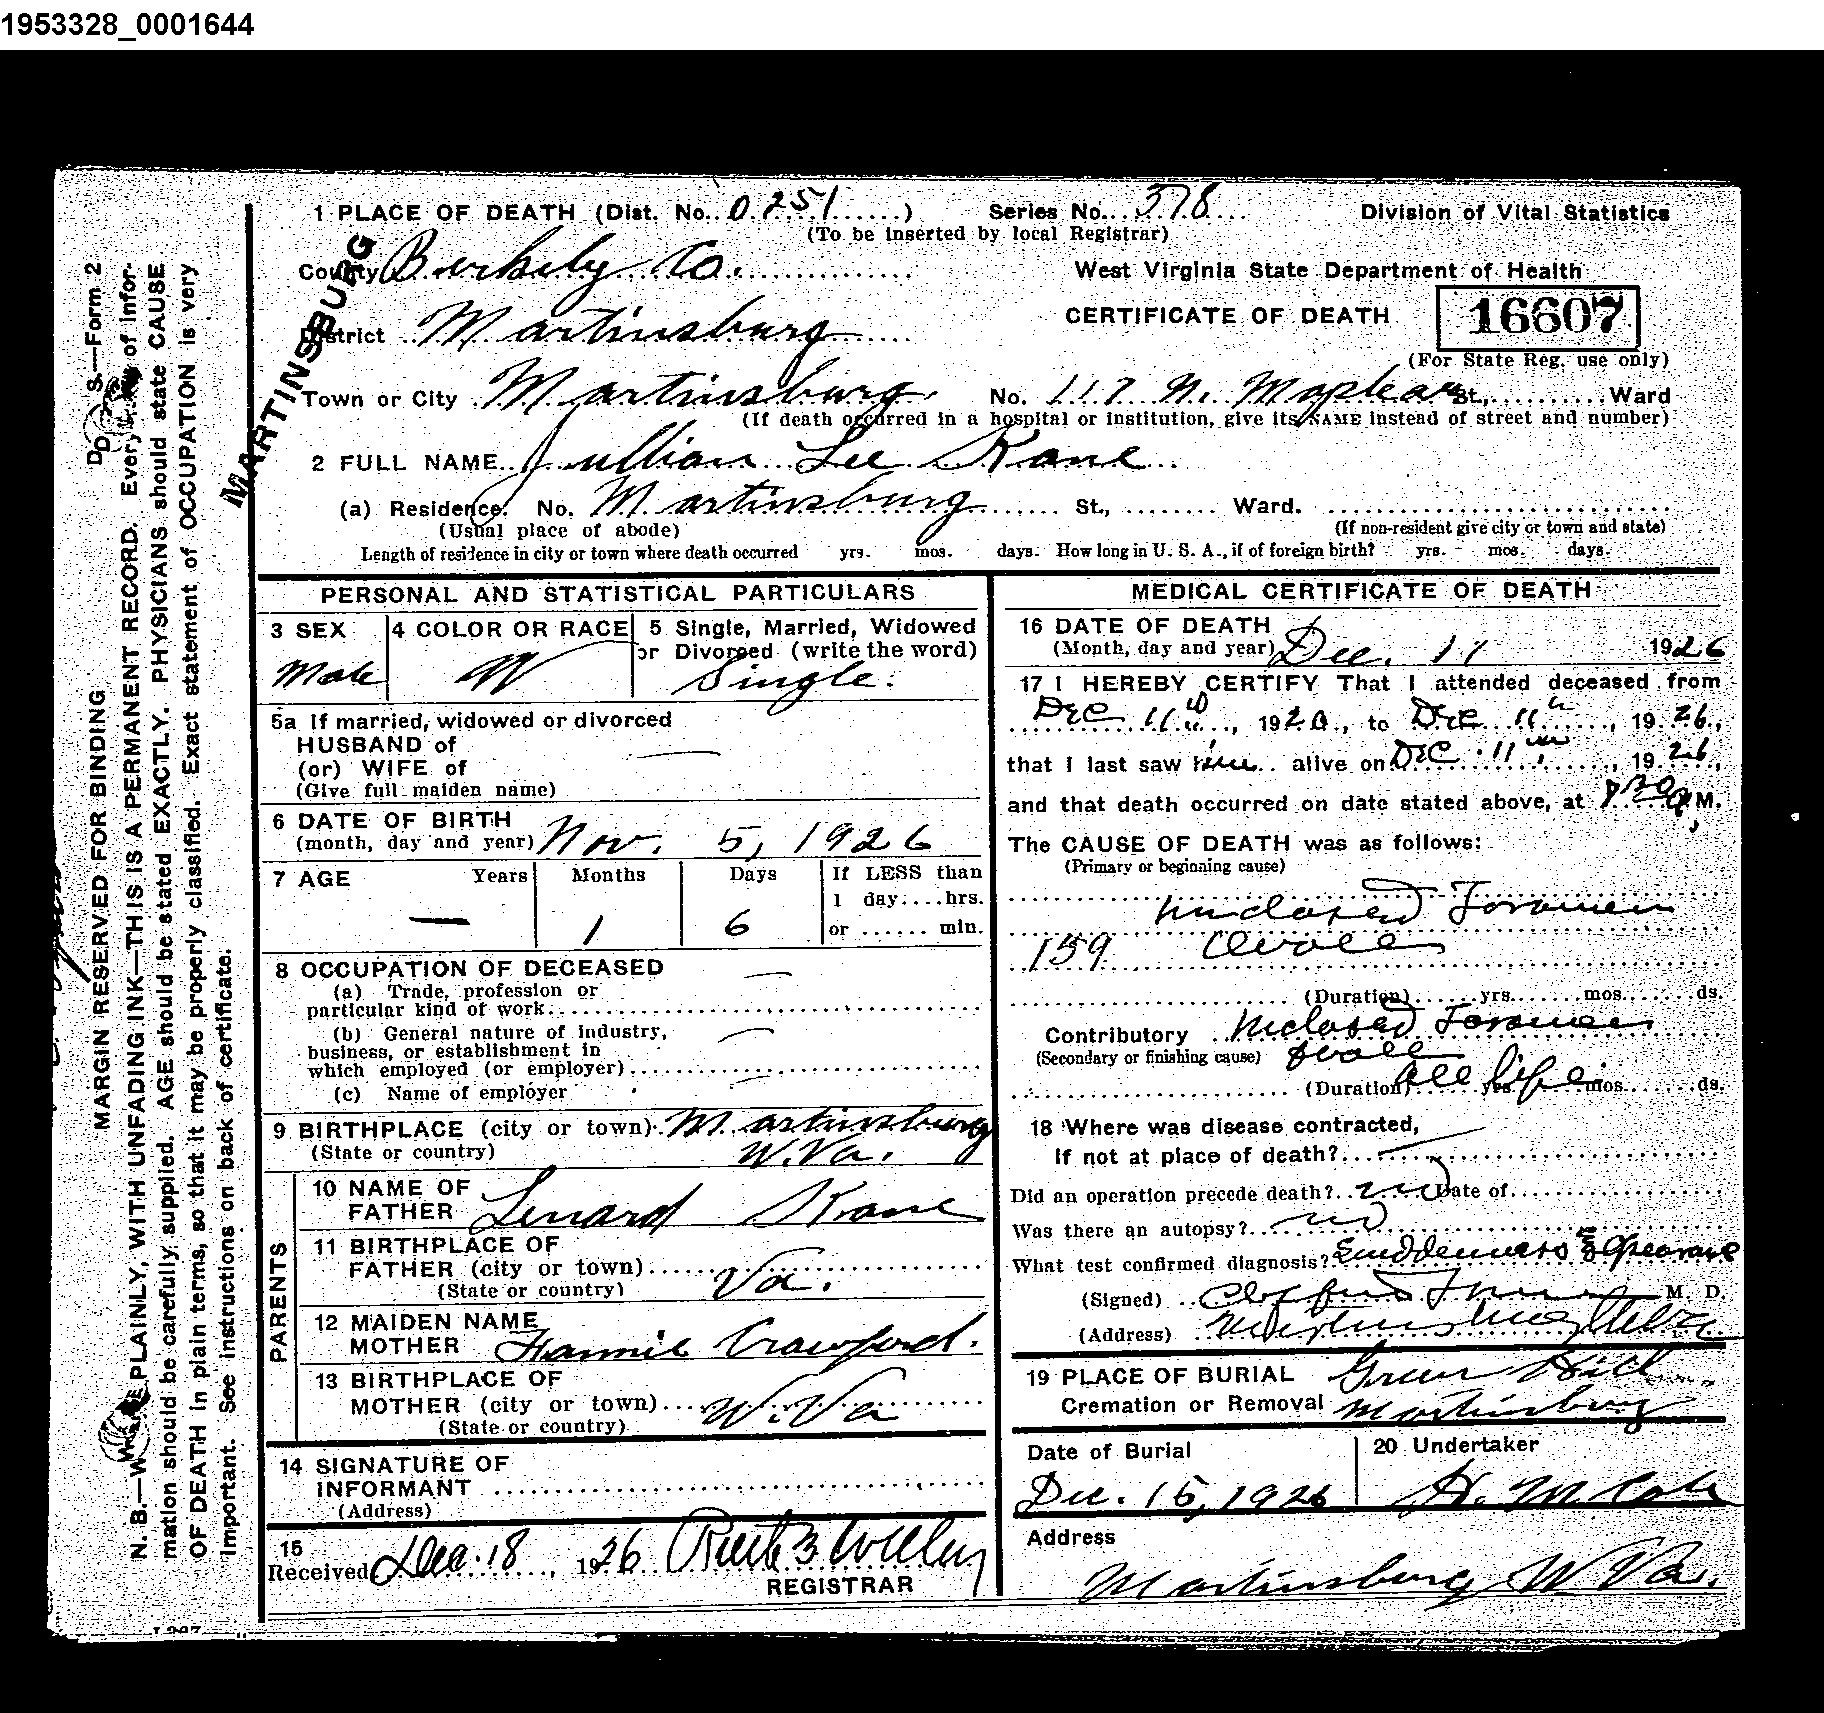 1953328_0001644
1 PLACE OF DEATH (Dist. No. 0251) Series No. 378 Division of Vital Statistics
(To be inserted by local Registrar)
County Berkeley Co. West Virginia State Department of Health
MARTINSBURG
District Martinsburg CERTIFICATE OF DEATH 16607
(For State Reg. use only)
Town or City Martinsburg. No. 117 N. Maple av St., Ward
(If death occurred in a hospital or institution, give its NAME instead of street and number)
2 FULL NAME Jullian Lee Kane
(a) Residence. No. Martinsburg St., Ward.
(Usual place of abode) (If non-resident give city or town and state)
Length of residence in city or town where death occurred yrs. mos. days. How long in U. S. A., if of foreign birth? yrs. mos. days.
PERSONAL AND STATISTICAL PARTICULARS
3 SEX 4 COLOR OR RACE 5 Single, Married, Widowed
or Divorced (write the word)
Male W Single.
5a If married, widowed or divorced
HUSBAND of
(or) WIFE of
(Give full maiden name)
6 DATE OF BIRTH
(month, day and year) Nov. 5, 1926
7 AGE Years Months Days If LESS than
1 day....hrs.
— 1 6 or ...... min.
8 OCCUPATION OF DECEASED
(a) Trade, profession or
particular kind of work
(b) General nature of industry,
business, or establishment in
which employed (or employer)
(c) Name of employer
9 BIRTHPLACE (city or town) Martinsburg
(State or country) W. Va.
PARENTS
10 NAME OF
FATHER Lenard Kane
11 BIRTHPLACE OF
FATHER (city or town) Va.
(State or country)
12 MAIDEN NAME
MOTHER Fannie Crawford.
13 BIRTHPLACE OF
MOTHER (city or town) W. Va
(State or country)
14 SIGNATURE OF
INFORMANT
(Address)
15
Received Dec. 18, 1926
REGISTRAR
MEDICAL CERTIFICATE OF DEATH
16 DATE OF DEATH
(Month, day and year) Dec. 11 1926
17 I HEREBY CERTIFY That I attended deceased from
Dec 11th, 1926, to Dec 11th, 1926,
that I last saw him alive on Dec 11th, 1926,
and that death occurred on date stated above, at M.
The CAUSE OF DEATH was as follows:
(Primary or beginning cause)
Unclosed Foramen
159 Ovale
(Duration) yrs. mos. ds.
Contributory Unclosed Foramen
(Secondary or finishing cause) Ovale
(Duration) all life yrs. mos. ds.
18 Where was disease contracted,
if not at place of death?
Did an operation precede death? no Date of
Was there an autopsy? no
What test confirmed diagnosis? Suddenness
(Signed) M. D.
(Address) Martinsburg
19 PLACE OF BURIAL Green Hill
Cremation or Removal Martinsburg
Date of Burial 20 Undertaker
Dec. 15, 1926 H. M.
Address
Martinsburg W Va.
D. S.—Form 2
MARGIN RESERVED FOR BINDING
N. B.—WRITE PLAINLY, WITH UNFADING INK—THIS IS A PERMANENT RECORD. Every item of infor-
mation should be carefully supplied. AGE should be stated EXACTLY. PHYSICIANS should state CAUSE
OF DEATH in plain terms, so that it may be properly classified. Exact statement of OCCUPATION is very
important. See instructions on back of certificate.